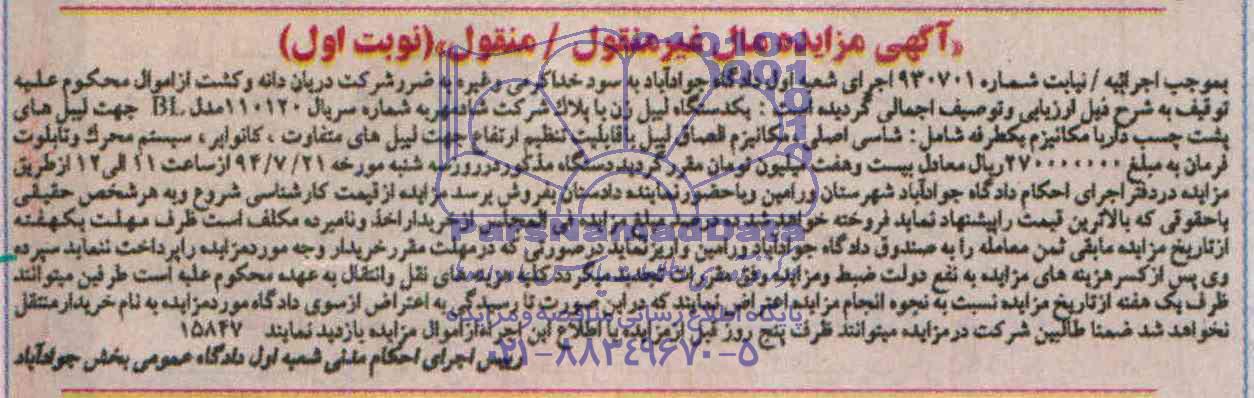 «آگهی مزایده مال غیرمنقول / منقول»(نوبت اول)
بموجب اجرائیه / نیابت شماره ۹۳۰۷۰۱ اجرای شعبه اول دادگاه جوادآباد به سود خداکرمی و غیره به ضرر شرکت دریان دانه و کشت از اموال محکوم علیه
توقیف به شرح ذیل ارزیابی وتوصیف اجمالی گردیده است : یکدستگاه لیبل زن با پلاک شرکت به شماره سریال ۱۱۰۱۲۰ مدل BL جهت لیبل های
پشت چسب دار با مکانیزم یکطرفه شامل : شاسی اصلی ، مکانیزم الصاق لیبل با قابلیت تنظیم ارتفاع جهت لیبل های متفاوت ، کانوایر ، سیستم محرک وتابلوت
فرمان به مبلغ ۲۷۰۰۰۰۰۰۰ ریال معادل بیست وهفت میلیون تومان مقرر گردید دستگاه مذکور در روز سه شنبه مورخه ۹۴/۷/۲۱ از ساعت ۱۱ الی ۱۲ از طریق
مزایده در دفتر اجرای احکام دادگاه جوادآباد شهرستان ورامین وباحضور نماینده دادستان بفروش برسد مزایده از قیمت کارشناسی شروع وبه هر شخص حقیقی
یاحقوقی که بالاترین قیمت راپیشنهاد نماید فروخته خواهد شد ده درصد مبلغ مزایده فی المجلس از خریدار اخذ ونامبرده مکلف است ظرف مهلت یکهفته
ازتاریخ مزایده مابقی ثمن معامله را به صندوق دادگاه جوادآباد ورامین واریز نماید درصورتی که درمهلت مقرر خریدار وجه موردمزایده راپرداخت ننماید سپرده
وی پس از کسر هزینه های مزایده به نفع دولت ضبط ومزایده وفق مقررات تجدید میگردد کلیه هزینه های نقل وانتقال به عهده محکوم علیه است طرفین میتوانند
ظرف یک هفته ازتاریخ مزایده نسبت به نحوه انجام مزایده اعتراض نمایند که در این صورت تا رسیدگی به اعتراض ازسوی دادگاه موردمزایده به نام خریدار منتقل
نخواهد شد ضمنا طالبین شرکت درمزایده میتوانند ظرف پنج روز قبل ازمزایده با اطلاع این اجرا ازاموال مزایده بازدید نمایند ۱۵۸۴۷
رئیس اجرای احکام مدنی شعبه اول دادگاه عمومی بخش جوادآباد
ParsNamadData
پایگاه اطلاع رسانی مناقصه و مزایده
۰۲۱-۸۸۳۴۹۶۷۰-۵